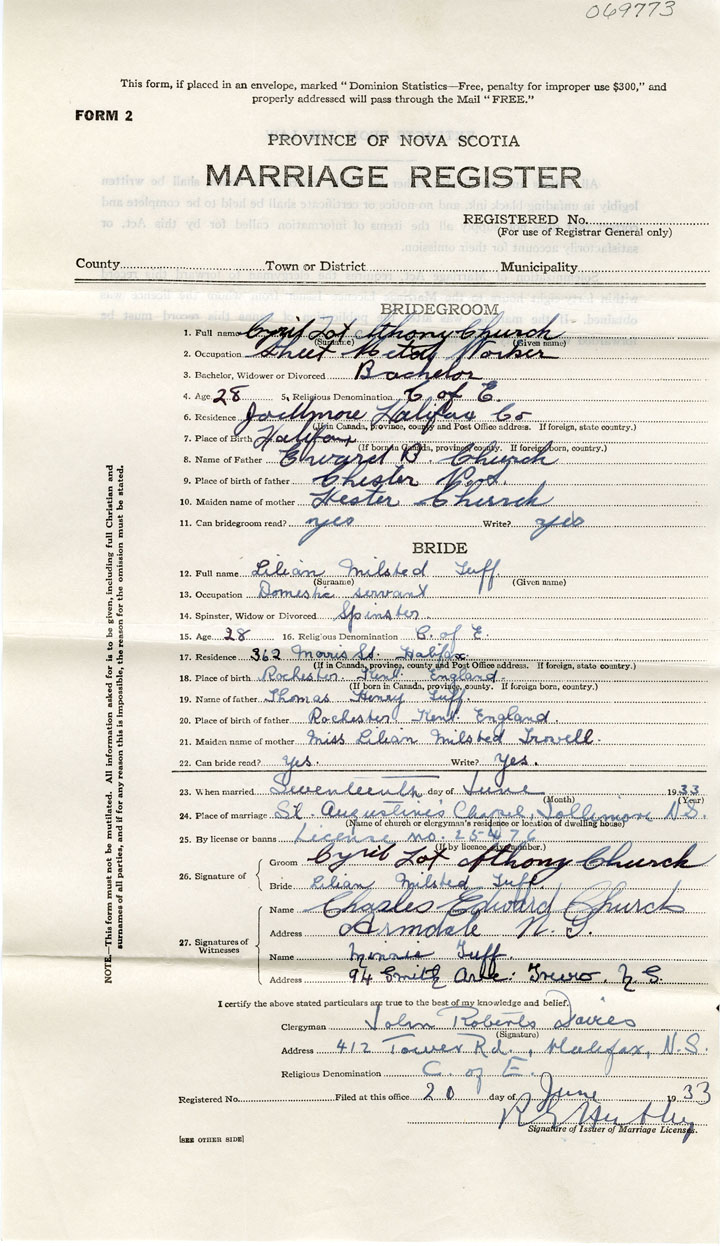 069773
This form, if placed in an envelope, marked "Dominion Statistics—Free, penalty for improper use $300," and
properly addressed will pass through the Mail "FREE."
FORM 2
PROVINCE OF NOVA SCOTIA
MARRIAGE REGISTER
REGISTERED No.
(For use of Registrar General only)
County Town or District Municipality
BRIDEGROOM
1. Full name Cyril Lot Athony Church
(Surname) (Given name)
2. Occupation Sheet Metal Worker
3. Bachelor, Widower or Divorced Bachelor
4. Age 28 5. Religious Denomination C of E.
6. Residence Jollimore Halifax Co
(If in Canada, province, county and Post Office address. If foreign, state country.)
7. Place of Birth Halifax
(If born in Canada, province, county. If foreign born, country.)
8. Name of Father Edward B. Church
9. Place of birth of father Chester
10. Maiden name of mother Hester Church
11. Can bridegroom read? yes Write? yes
BRIDE
12. Full name Lilian Milsted Tuff
(Surname) (Given name)
13. Occupation Domestic servant
14. Spinster, Widow or Divorced Spinster.
15. Age 28 16. Religious Denomination C. of E.
17. Residence 362 Morris St. Halifax.
(If in Canada, province, county and Post Office address. If foreign, state country.)
18. Place of birth Rochester. Kent. England.
(If born in Canada, province, county. If foreign born, country.)
19. Name of father Thomas Henry Tuff.
20. Place of birth of father Rochester Kent. England.
21. Maiden name of mother Miss Lilian Milsted Trowell.
22. Can bride read? Yes. Write? Yes.
23. When married Seventeenth day of June 1933
(Month) (Year)
24. Place of marriage St. Augustine's Chapel, Jollimore N.S.
(Name of church or clergyman's residence or location of dwelling house)
25. By license or banns License no. 25476
(If by licence, give number.)
26. Signature of
Groom Cyril Lot Athony Church
Bride Lilian Milsted Tuff
27. Signatures of Witnesses
Name Charles Edward Church
Address Armdale N. S.
Name Minnie Tuff.
Address 94 Smith Ave: Truro. N.S.
I certify the above stated particulars are true to the best of my knowledge and belief.
Clergyman John Roberts Davies
(Signature)
Address 412 Tower Rd., Halifax, N.S.
Religious Denomination C. of E.
Registered No. Filed at this office 20 day of June 1933
Signature of Issuer of Marriage Licenses.
[SEE OTHER SIDE]
NOTE.—This form must not be mutilated. All information asked for is to be given, including full Christian and
surnames of all parties, and if for any reason this is impossible, the reason for the omission must be stated.